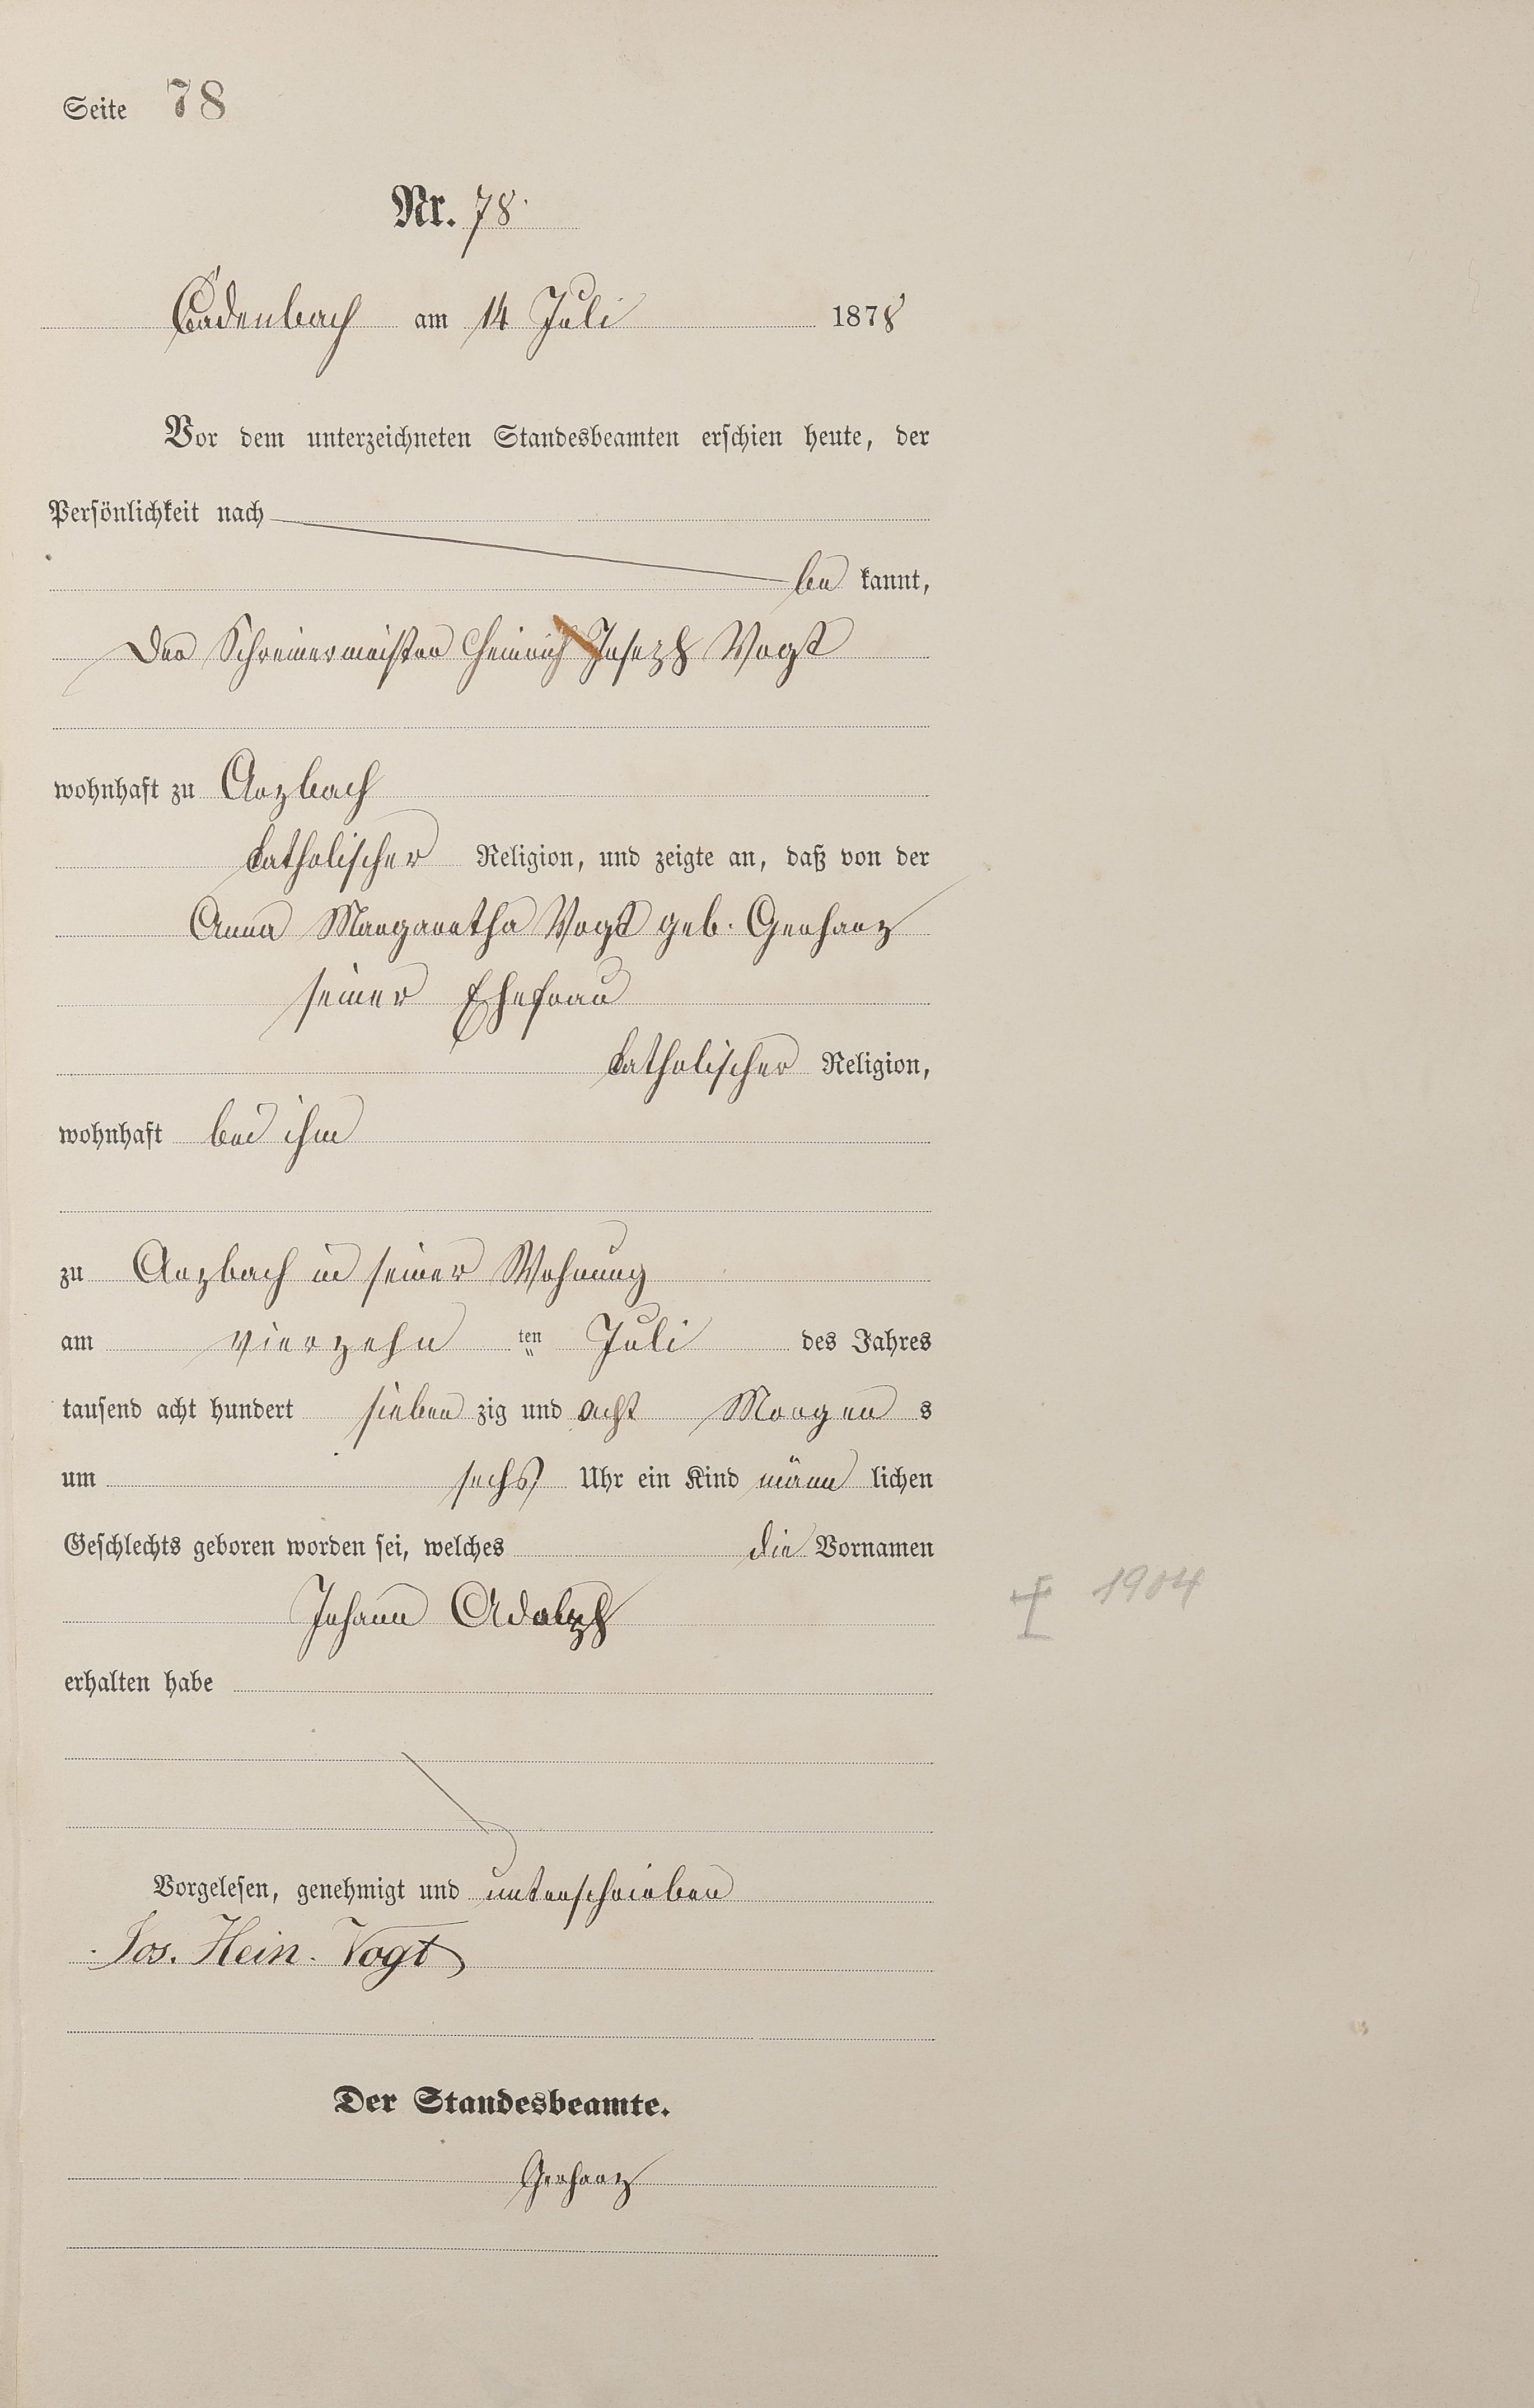 Seite 78
Nr. 78.
Cadenbach am 14 Juli 1878
Vor dem unterzeichneten Standesbeamten erschien heute, der
Persönlichkeit nach
be kannt,
Der Schreinermeister Heinrich Joseph Vogt
wohnhaft zu Arzbach
katholischer Religion, und zeigte an, daß von der
Anna Margaretha Vogt geb. Gerharz
seiner Ehefrau
katholischer Religion,
wohnhaft bei ihm
zu Arzbach in seiner Wohnung
am vierzehn ten Juli des Jahres
tausend acht hundert sieben zig und acht Morgen s
um sechs Uhr ein Kind männ lichen
Geschlechts geboren worden sei, welches die Vornamen
Johann Adolph
† 1904
erhalten habe
Vorgelesen, genehmigt und unterschrieben
Jos. Hein. Vogt
Der Standesbeamte.
Gerharz